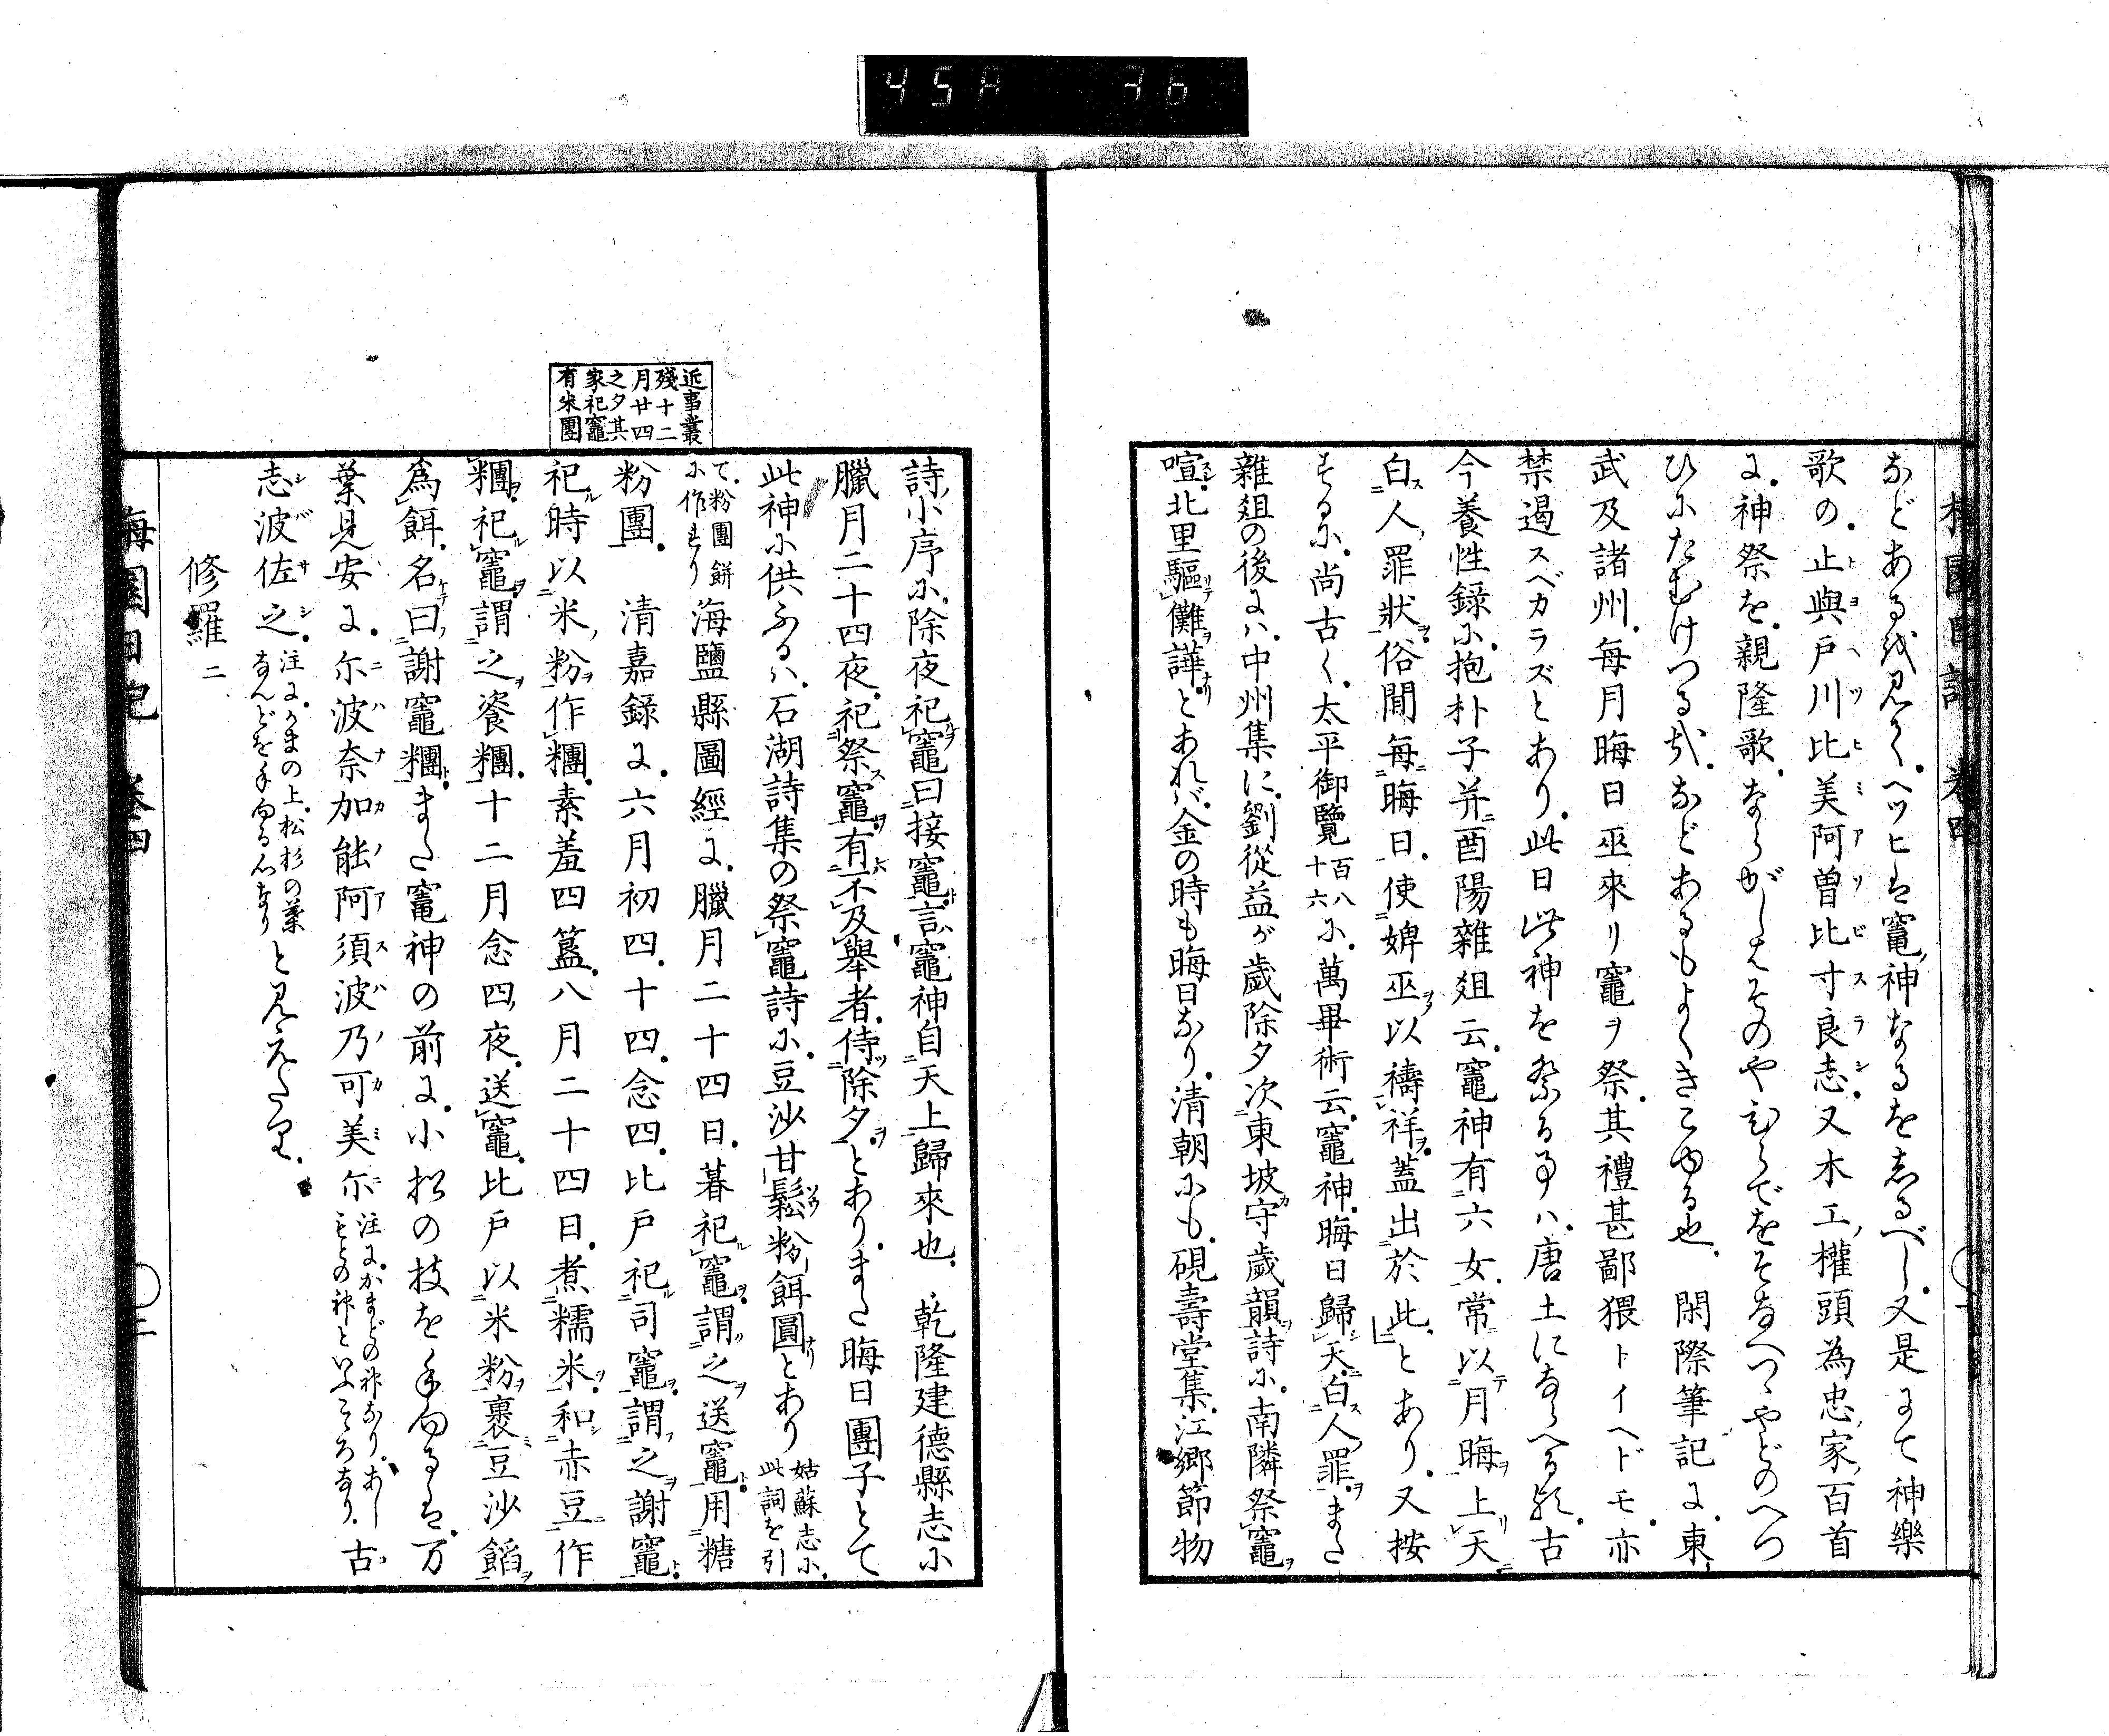 45A 36
梅園日記 巻四
などあるを見て。ヘツヒは竈神なるをしるべし。又是にて神樂
歌の。止與戸川比美阿曽比寸良志。又木工權頭為忠家百首
に。神祭を。親隆歌。ならがしはそのやひらでをそなへつゝやどのへつ
ひにたむけつる哉。などあるもよくきこゆる也。閑際筆記に。東
武及諸州。每月晦日巫來リ竈ヲ祭。其禮甚鄙猥トイヘドモ。亦
禁遏スベカラズとあり。此日此神を祭る事ハ。唐土にならへる歟。古
今養性録に。抱朴子并酉陽雜爼云。竈神有六女。常以月晦上天
白人罪狀。俗閒每晦日。使婢巫以禱祥。蓋出於此。とあり。又按
ずるに。尚古く。太平御覽百八十六に。萬畢術云。竈神。晦日歸天。白人罪。また
雜爼の後には。中州集に。劉從益が歲除夕次東坡守歲韻詩に。南隣祭竈
喧。北里驅儺譁とあれば。金の時も晦日なり。清朝にも。硯壽堂集。江郷節物
詩小序に。除夜祀竈曰接竈。言竈神自天上歸來也。乾隆建德縣志に
臘月二十四夜。祀祭竈。有不及舉者。待除夕。とあり。また晦日團子とて
此神に供ふるハ。石湖詩集の祭竈詩に。豆沙甘鬆粉餌圓とあり姑蘇志に。此詞を引
て。粉團餅に作れり海鹽縣圖經に。臘月二十四日。暮祀竈。謂之送竈。用糖
粉團。清嘉錄に。六月初四。十四。念四。比戸祀司竈。謂之謝竈。
祀時以米粉作糰。素羞四簋。八月二十四日。煮糯米。和赤豆作
糰。祀竈。謂之餈糰。十二月念四夜。送竈。比戸以米粉裹豆沙餡
爲餌。名曰謝竈糰。また竈神の前に。小松の枝を手向るは。万
葉見安に。尓波奈加能阿須波乃可美尓注に。かまどの神なり。あしもとの神といふこゝろなり。古
志波佐之。注に。かまの上。松杉の葉なんどを手向る心なりと見えたり。
修羅二
梅園日記 巻四 〇二
近事叢
殘十二
月廿四
之夕其
家祀竈
有米團